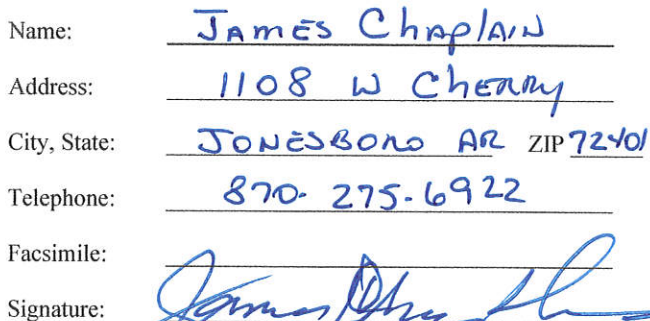 Name: JAMES ChAplAIN
Address: 1108 W ChERRy
City, State: JONESBORO AR ZIP 72401
Telephone: 870- 275-6922
Facsimile:
Signature: James